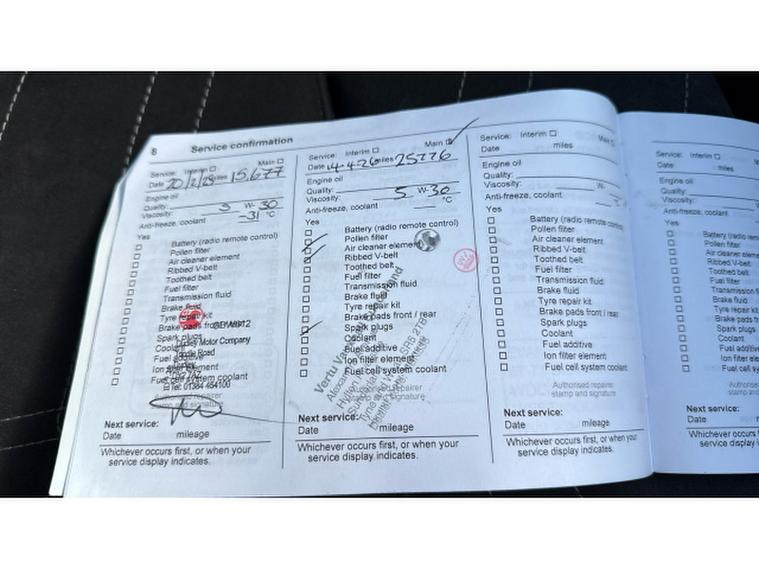 8 Service confirmation
Service: Interim ☐ Main ☐
Date 20/2/23 miles 15,677
Engine oil
Quality:
Viscosity: 5 W- 30
Anti-freeze, coolant -31 °C
Yes
☐ Battery (radio remote control)
☐ Pollen filter
☐ Air cleaner element
☐ Ribbed V-belt
☐ Toothed belt
☐ Fuel filter
☐ Transmission fluid
☐ Brake fluid
☐ Tyre repair kit
☐ Brake pads front / rear
☐ Spark plugs
☐ Coolant
☐ Fuel additive
☐ Ion filter element
☐ Fuel cell system coolant
Dudley Motor Company
Tel: 01384 454100
Next service:
Date mileage
Whichever occurs first, or when your
service display indicates.
Service: Interim ☐ Main ☑
Date miles 25776
Engine oil
Quality:
Viscosity: 5 W- 30
Anti-freeze, coolant °C
Yes
☐ Battery (radio remote control)
☑ Pollen filter
☑ Air cleaner element
☐ Ribbed V-belt
☐ Toothed belt
☐ Fuel filter
☐ Transmission fluid
☐ Brake fluid
☐ Tyre repair kit
☐ Brake pads front / rear
☑ Spark plugs
☐ Coolant
☐ Fuel additive
☐ Ion filter element
☐ Fuel cell system coolant
Next service:
Date mileage
Whichever occurs first, or when your
service display indicates.
Service: Interim ☐ Main
Date miles
Engine oil
Quality:
Viscosity: W-
Anti-freeze, coolant
Yes
☐ Battery (radio remote
☐ Pollen filter
☐ Air cleaner element
☐ Ribbed V-belt
☐ Toothed belt
☐ Fuel filter
☐ Transmission fluid
☐ Brake fluid
☐ Tyre repair kit
☐ Brake pads front / rear
☐ Spark plugs
☐ Coolant
☐ Fuel additive
☐ Ion filter element
☐ Fuel cell system coolant
Authorised repairer
stamp and signature
Next service:
Date mileage
Whichever occurs first, or when your
service display indicates.
Service: Interim ☐
Date miles
Engine oil
Quality:
Viscosity:
Anti-freeze, coolant
Yes
☐ Battery (radio
☐ Pollen filter
☐ Air cleaner
☐ Ribbed V-belt
☐ Toothed belt
☐ Fuel filter
☐ Transmission
☐ Brake fluid
☐ Tyre repair kit
☐ Brake pads
☐ Spark plugs
☐ Coolant
☐ Fuel additive
☐ Ion filter
☐ Fuel cell
Next service:
Date
Whichever occurs
service display